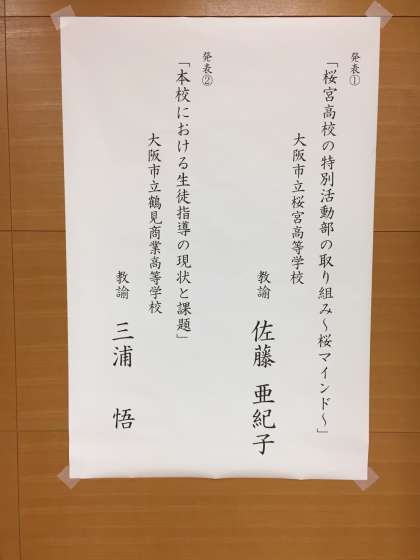 発表①
「桜宮高校の特別活動部の取り組み～桜マインド～」
大阪市立桜宮高等学校
教諭 佐藤 亜紀子
発表②
「本校における生徒指導の現状と課題」
大阪市立鶴見商業高等学校
教諭 三浦 悟